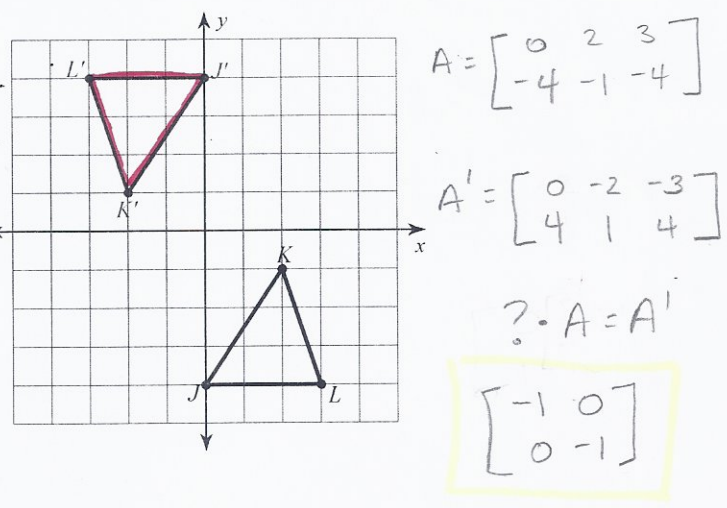 y
L'
J'
K'
x
K
J
L
A = [ 0 2 3
-4 -1 -4 ]
A' = [ 0 -2 -3
4 1 4 ]
? · A = A'
[ -1 0
0 -1 ]